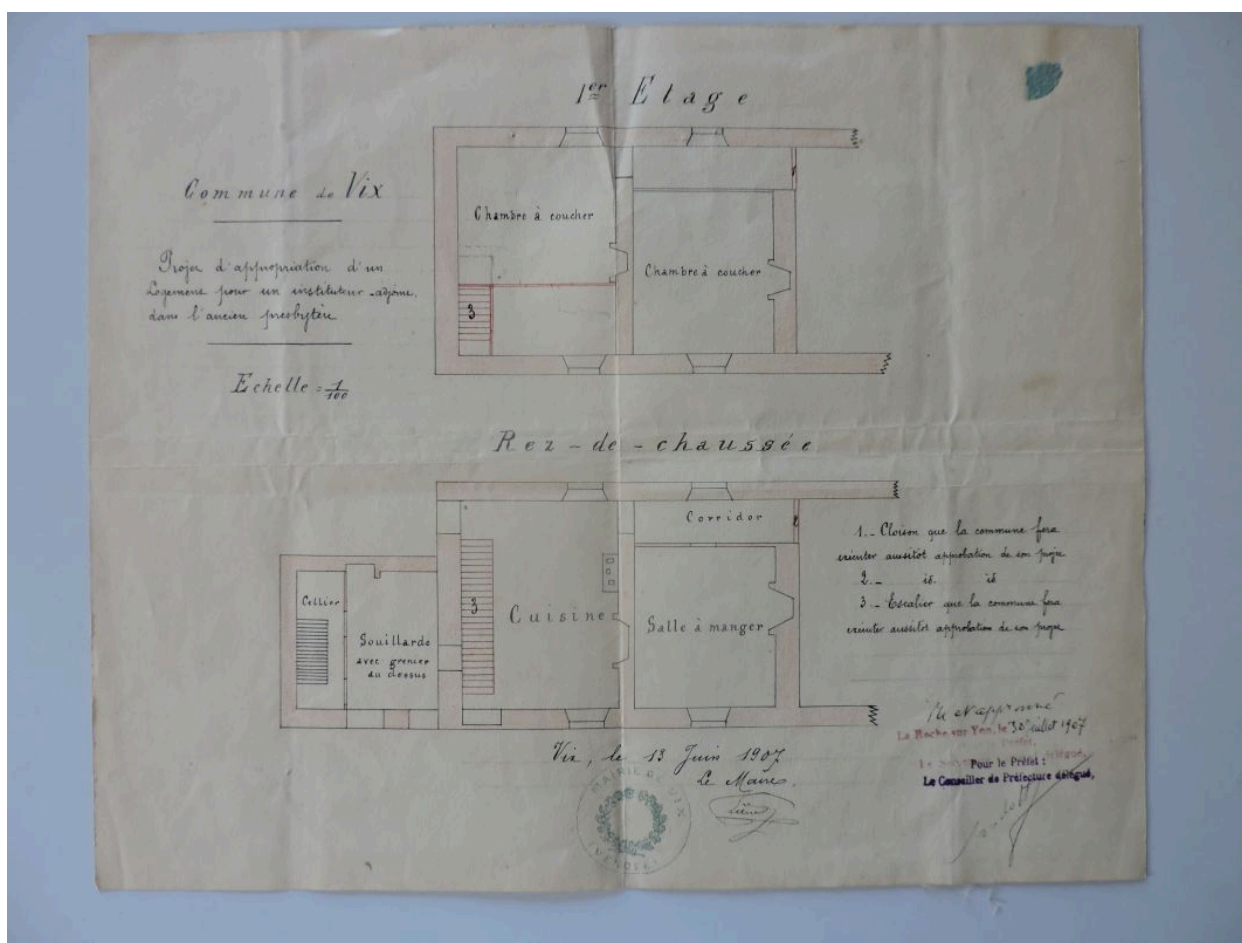 1er Etage
Commune de Vix
Projet d'appropriation d'un
Logement pour un instituteur-adjoint,
dans l'ancien presbytère
Echelle = 1/100
Chambre à coucher
Chambre à coucher
3
Rez-de-chaussée
Corridor
Cellier
Souillarde
avec grenier
au dessus
3
Cuisine
Salle à manger
1.- Cloison que la commune fera
exécuter aussitôt approbation de son projet
2.- id. id
3.- Escalier que la commune fera
exécuter aussitôt approbation de son projet
Vix, le 13 Juin 1907
Le Maire.
MAIRIE DE VIX
(VENDÉE)
Vu et approuvé
La Roche-sur-Yon, le 30 juillet 1907
Pour le Préfet :
Le Conseiller de Préfecture délégué,